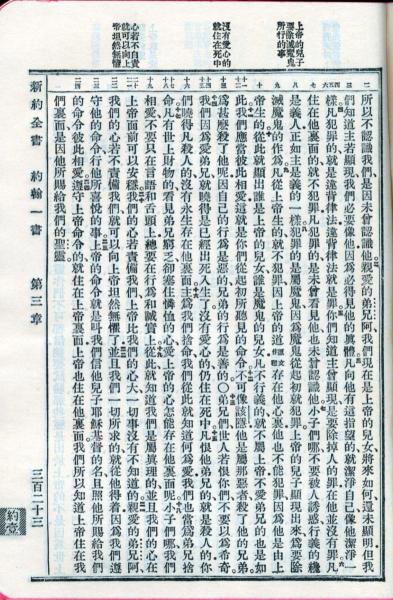 上帝的兒子要除滅魔鬼所行的事
沒有愛心的就住在死中
心若不自責就可以向上帝坦然無懼
所以不認識我們是因未曾認識他親愛的弟兄阿我們現在是上帝的兒女將來如何還未顯明但我
們知道主若顯現我們必要像他因為必得見他的真體凡向他有這指望的就潔淨自己像他潔淨一
樣凡犯罪的就是違背律法違背律法就是罪你們知道主曾顯現是要除掉人的罪在他並沒有罪凡
住在他裏面的就不犯罪凡犯罪的是未曾看見他也未曾認識他小子們哪不要被人誘惑行義的纔
是義人正如主是義的一樣犯罪的是屬魔鬼因為魔鬼從起初就犯罪上帝的兒子顯現出來為要除
滅魔鬼的作為凡從上帝生的就不犯罪因上帝的道存在他心裏他也不能犯罪因為他是由上
帝生的從此就顯出誰是上帝的兒女誰是魔鬼的兒女凡不行義的就不屬上帝不愛弟兄的也是如
此我們應當彼此相愛這就是你們從起初所聽見的命令不可像該隱他是屬那惡者殺了他的兄弟
為甚麼殺了他呢因自己的行為是惡的兄弟的行為是善的弟兄們世人若恨你們不要以為希奇
我們因為愛弟兄就曉得是已經出死入生了沒有愛心的仍住在死中凡恨他弟兄的就是殺人的你
們曉得凡殺人的沒有永生存在他裏面主為我們捨命我們從此就知道何為愛我們也當為弟兄捨
命凡有世上財物的看見弟兄窮乏卻塞住憐恤的心愛上帝的心怎能存在他裏面呢小子們哪我們
相愛不要只在言語和舌頭上總要在行為和誠實上從此就知道我們是屬真理的並且我們的心在
上帝面前可以安穩我們的心若責備我們上帝比我們的心大一切事沒有不知道的親愛的弟兄阿
我們的心若不責備我們就可以向上帝坦然無懼了並且我們一切所求的就從他得着因為我們遵
守他的命令行他所喜悅的事上帝的命令就是叫我們信他兒子耶穌基督的名且照他所賜給我們
的命令彼此相愛遵守上帝命令的就住在上帝裏面上帝也住在他裏面我們所以知道上帝住在我
們裏面是因他所賜給我們的聖靈
新約全書 約翰一書 第三章 三百二十三
約壹